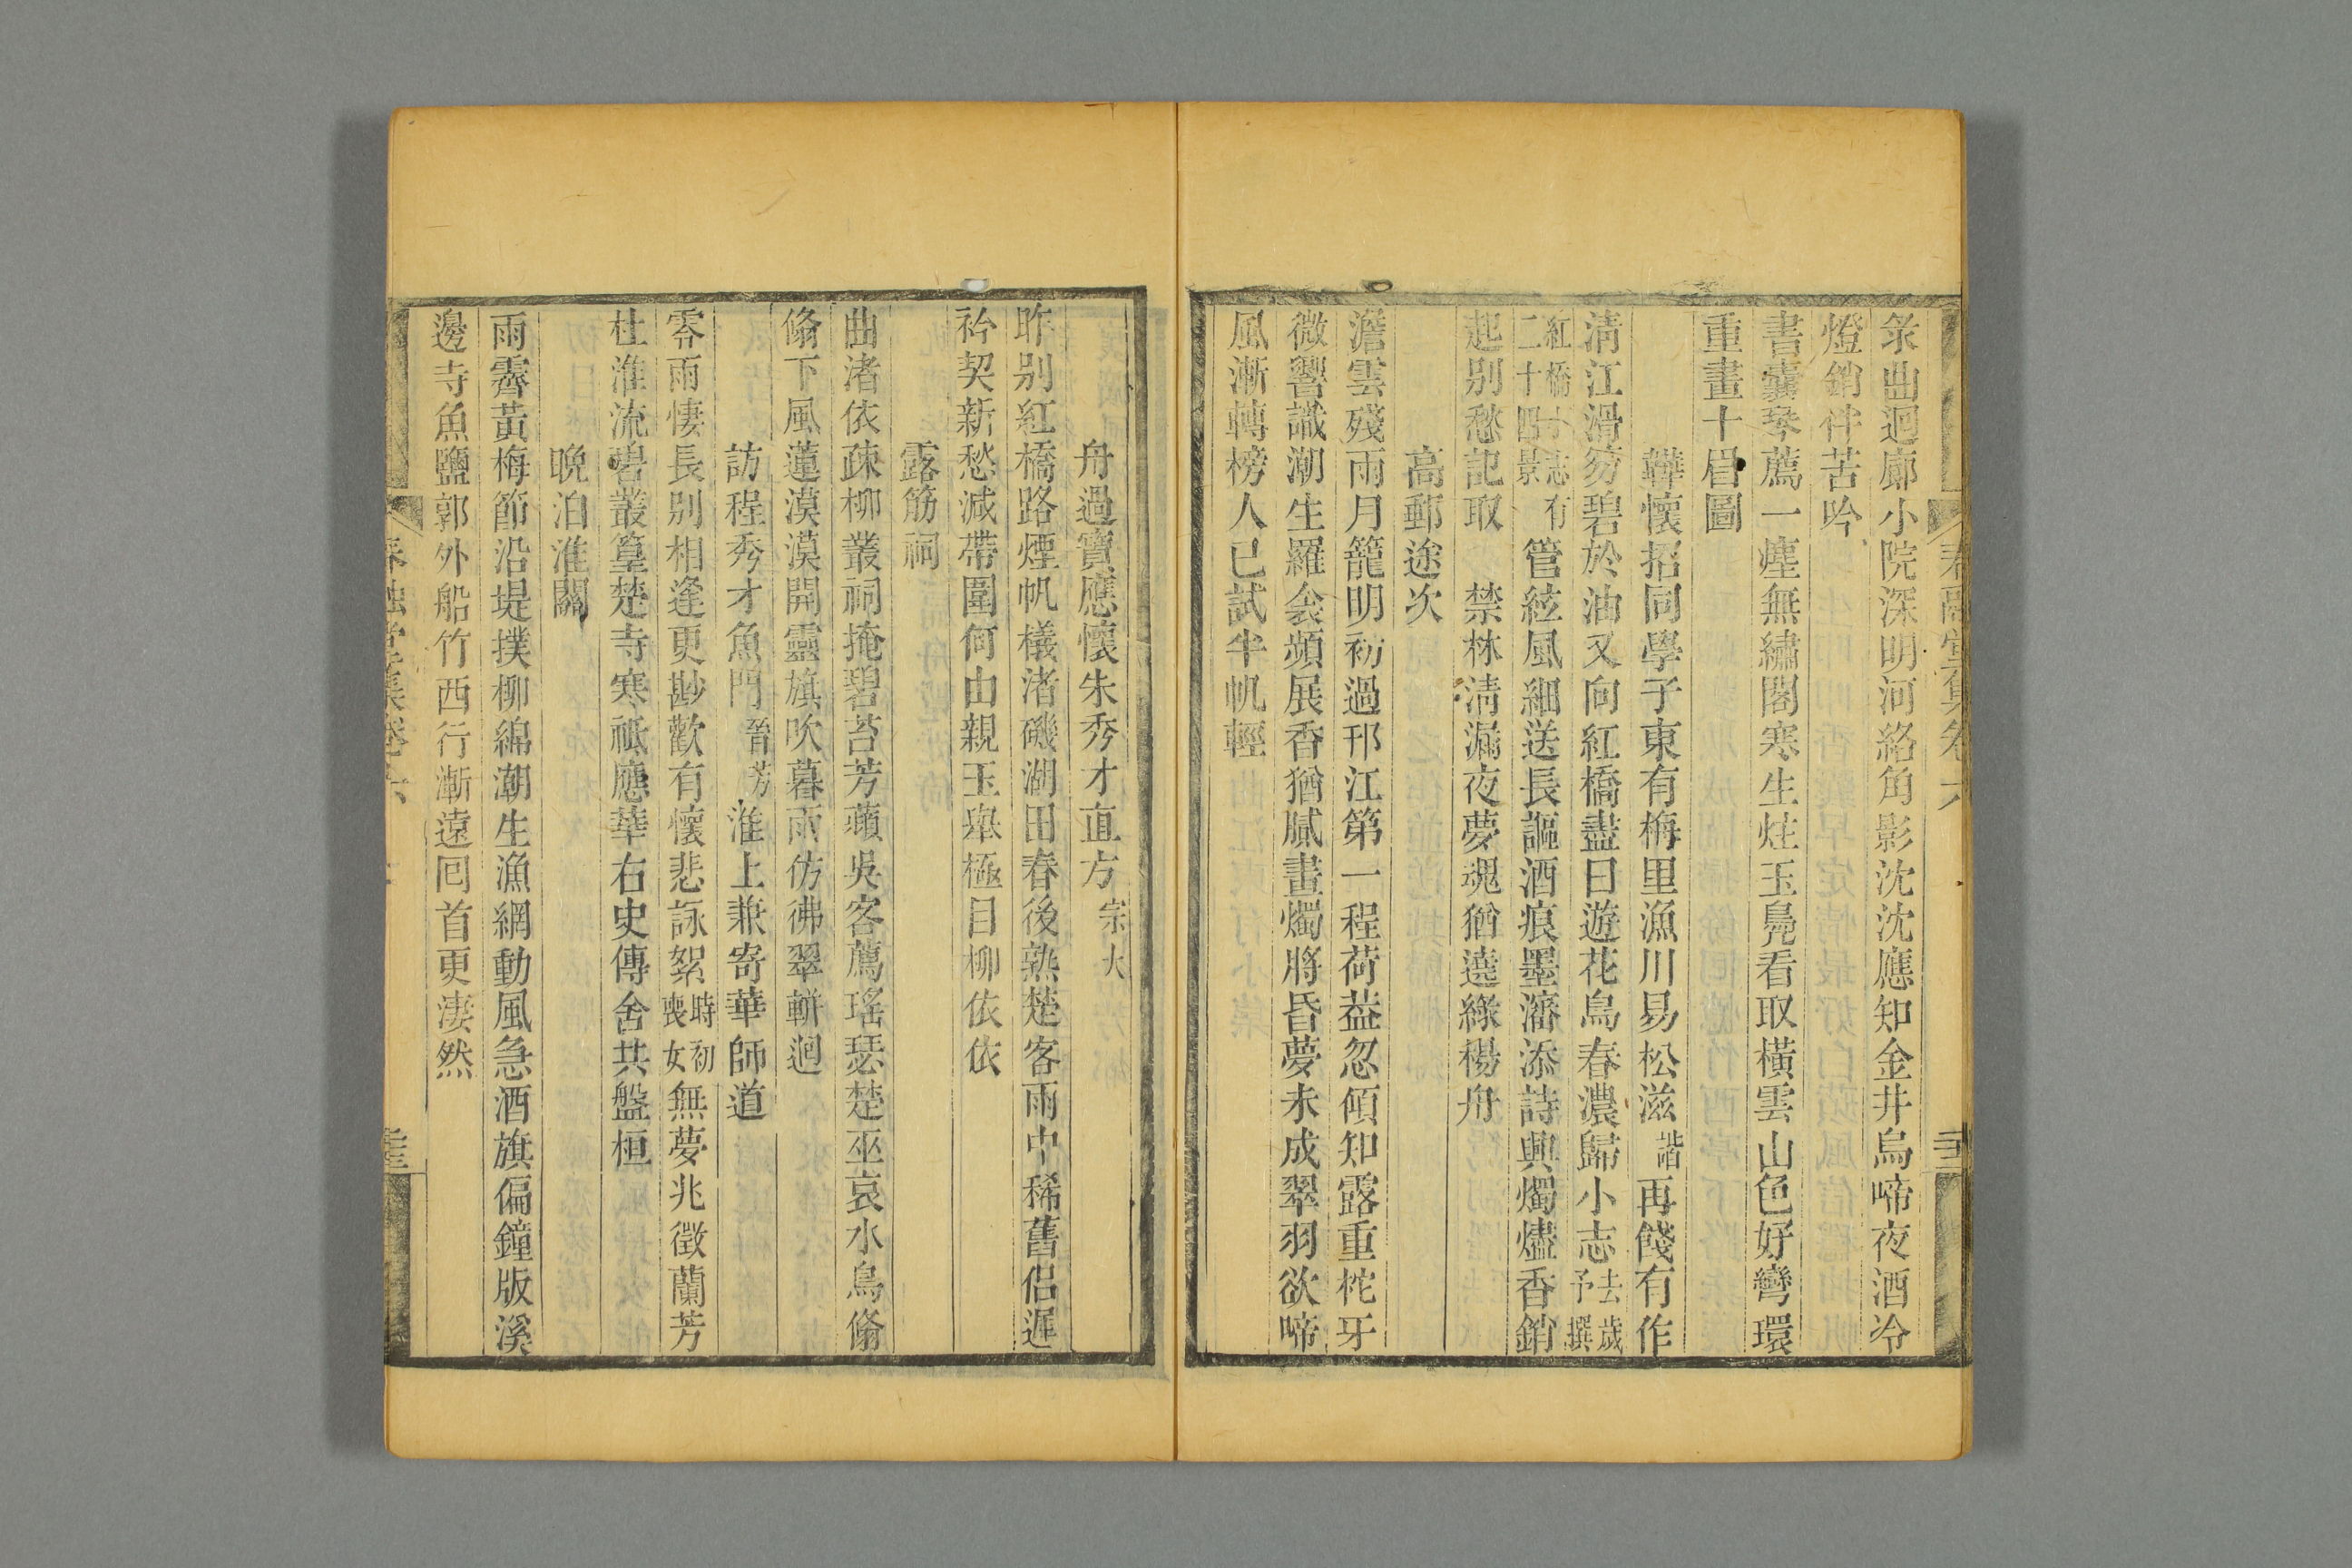 曲迴廊小院深明河絡角影沈沈應知金井烏啼夜酒冷
燈銷伴苦吟
書囊琴薦一塵無繡閣寒生炷玉鳧看取橫雲山色好彎環
重畫十眉圖
韡懷招同學子東有梅里漁川易松滋諧再餞有作
淸江滑笏碧於油又向紅橋盡日遊花鳥春濃歸小志去歲予撰
紅橋小志有二十四景管絃風細送長謳酒痕墨瀋添詩興燭燼香銷
起別愁記取禁林淸漏夜夢魂猶遶綠楊舟
高郵途次
澹雲殘雨月籠明初過邗江第一程荷葢忽傾知露重柁牙
微響識潮生羅衾頻展香猶膩畫燭將昏夢未成翠羽欲啼
風漸轉榜人已試半帆輕
舟過寶應懷朱秀才直方宗大
昨别紅橋路煙帆檥渚磯湖田春後熟楚客雨中稀舊侶遲
袊契新愁減帶圍何由親玉舉極目柳依依
露筋祠
曲渚依疎柳叢祠掩碧苔芳蘋吳客薦瑤瑟楚巫哀水鳥翛
翛下風蓮漠漠開靈旗吹暮雨仿彿翠軿迴
訪程秀才魚門晉芳淮上兼寄華師道
零雨悽長別相逢更尠歡有懷悲詠絮時初喪女無夢兆徵蘭芳
杜淮流碧叢篁楚寺寒祗應華右史傳舍共盤桓
晚泊淮關
雨霽黃梅節沿堤撲柳綿潮生漁網動風急酒旗偏鐘版溪
邊寺魚鹽郭外船竹西行漸遠囘首更淒然